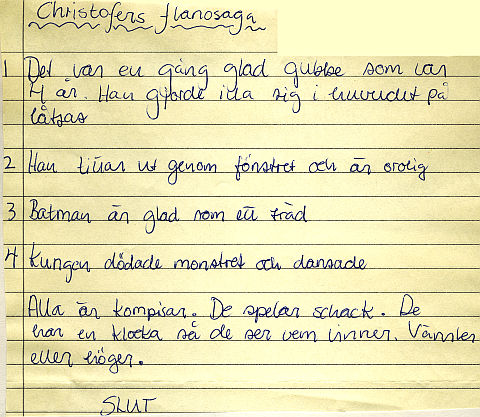 Christofers flanosaga
1 Det var en gång glad gubbe som var
4 år. Han gjorde illa sig i huvudet på
låtsas
2 Han tittar ut genom fönstret och är orolig
3 Batman är glad som ett träd
4 Kungen dödade monstret och dansade
Alla är kompisar. De spelar schack. De
har en klocka så de ser vem vinner. Vänster
eller höger.
SLUT